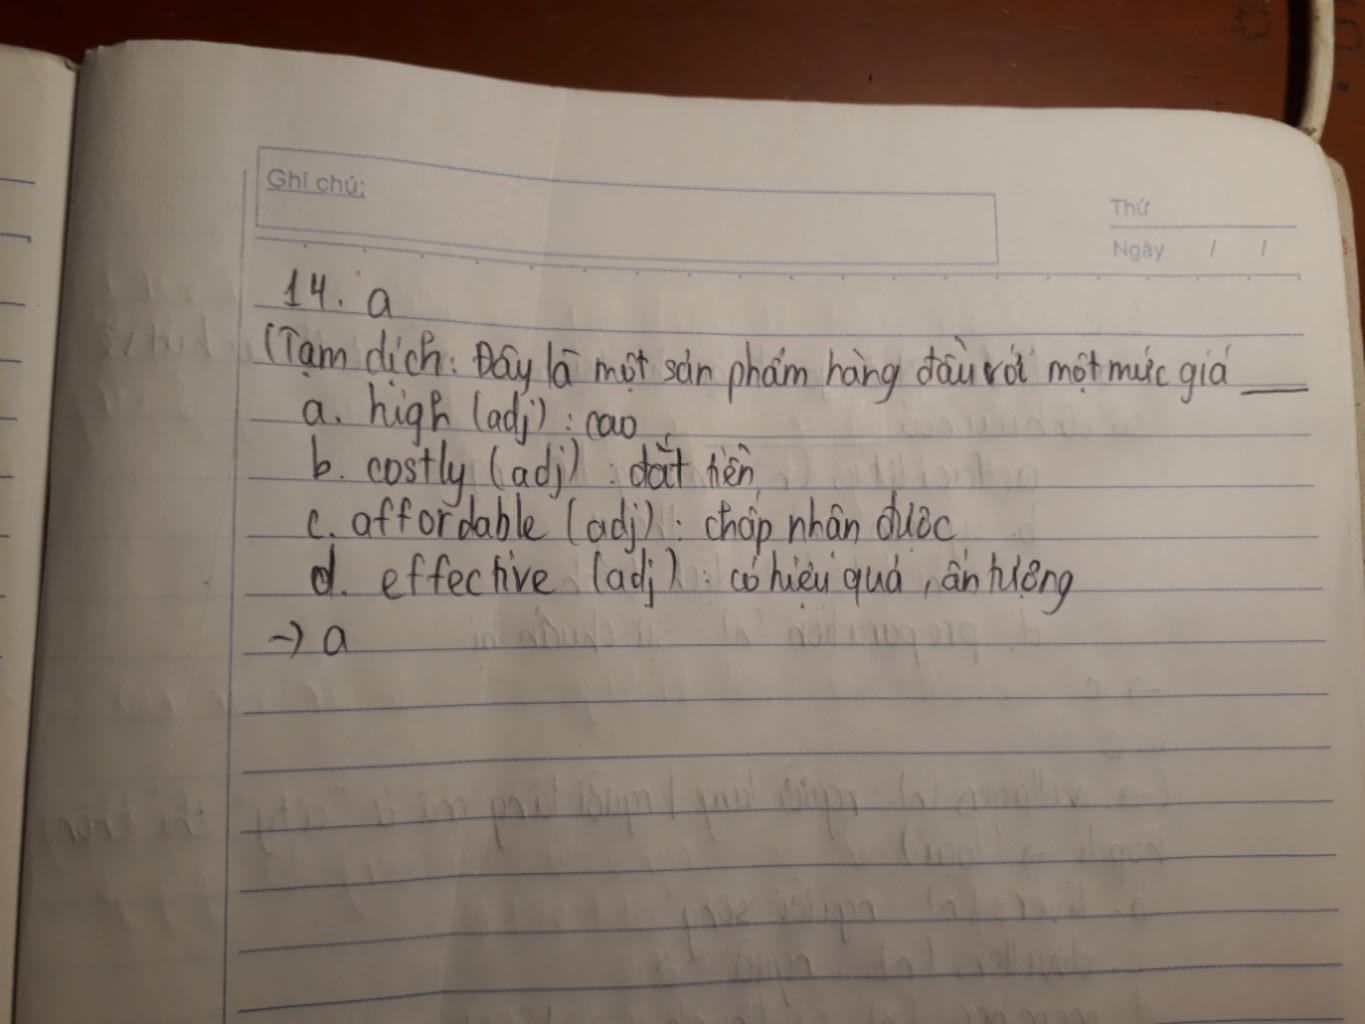 Ghi chú:
Thứ
Ngày / /
14. a
(Tạm dịch: Đây là một sản phẩm hàng đầu với một mức giá ___
a. high (adj) : cao
b. costly (adj) : đắt tiền
c. affordable (adj) : chấp nhận được
d. effective (adj) : có hiệu quả, ấn tượng
→ a